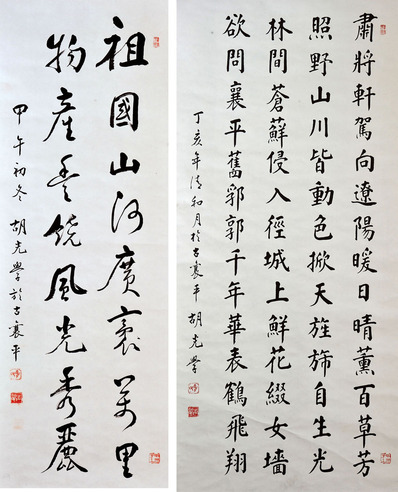 肅將軒駕向遼陽暖日晴薰百草芳
照野山川皆動色掀天旌旆自生光
林間蒼蘚侵入徑城上鮮花綴女墻
欲問襄平舊郛郭千年華表鶴飛翔
丁亥年清和月於古襄平胡克學
祖國山河廣袤萬里
物產豐饒風光秀麗
甲午初冬胡克學於古襄平